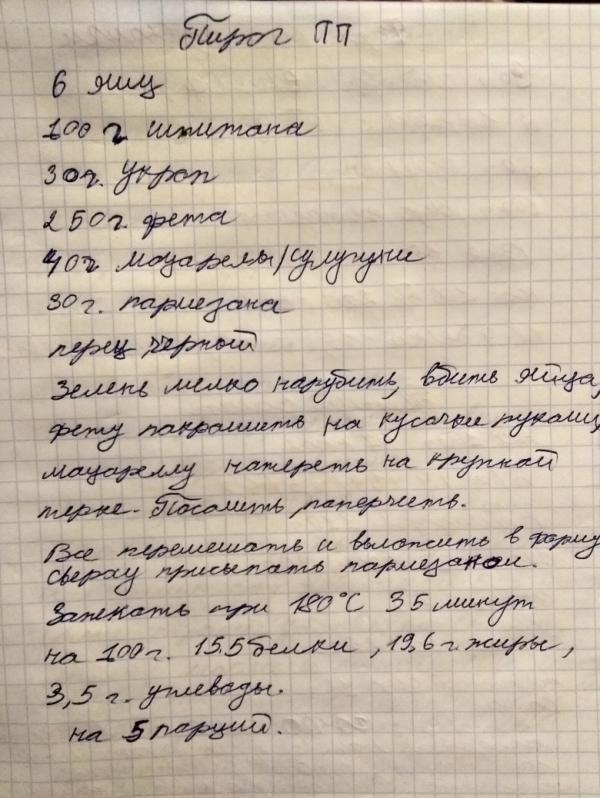 Пирог ПП
6 яиц
100 г шпитана
30г. Укроп
250г. фета
40г моцарелы/сулугуни
30г. пармезана
перец черной
Зелень мелко нарубить, вбить яйца,
фету пакрашить на кусочки руками,
моцареллу натереть на крупной
терке. Посолить, паперчить.
Все перемешать и выложить в форму
сверху присыпать пармезаном.
Запекать при 180°С 35 минут
на 100г. 15.5 белки, 19,6 г. жиры,
3,5 г. углеводы.
на 5 парций.